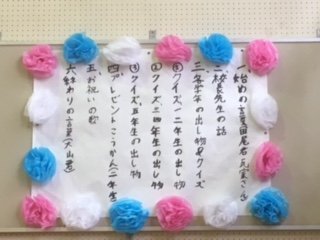 一 始めの言葉
二 校長先生の話
三 各学年の出し物&クイズ
①クイズ 一二年生の出し物
②クイズ 三四年生の出し物
③クイズ 五年生の出し物
四 プレゼントこうかん(二年生)
五 お祝いの歌
六 終わりの言葉(大山君)